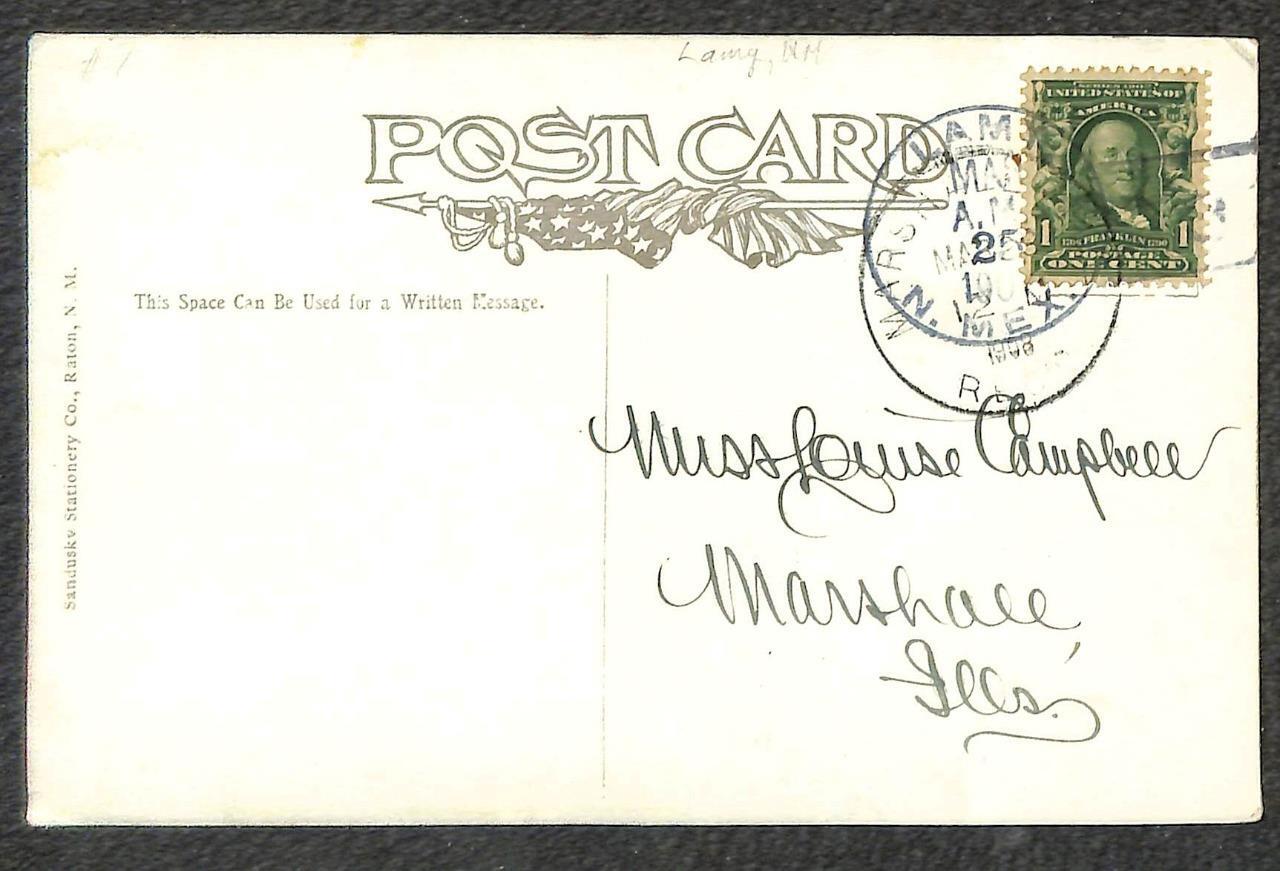 Lamy, NM
POST CARD
SERIES 1902
UNITED STATES OF
AMERICA
1 1706 FRANKLIN 1790 1
POSTAGE
ONE CENT
LAMY
MAR
A.M.
25
190
N. MEX.
MARS
MA 28
12
1908
R
This Space Can Be Used for a Written Message.
Sandusky Stationery Co., Raton, N. M.
Miss Louise Campbell
Marshall,
Ills.